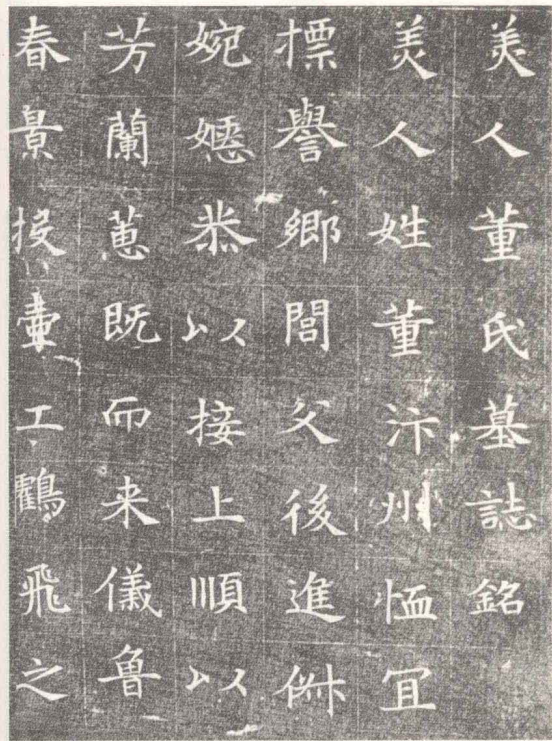 美人董氏墓誌銘
美人姓董汴州恤宜
摽譽鄉閭父後進俶
婉嬺恭以接上順以
芳蘭蕙既而来儀魯
春景投壺工鸖飛之